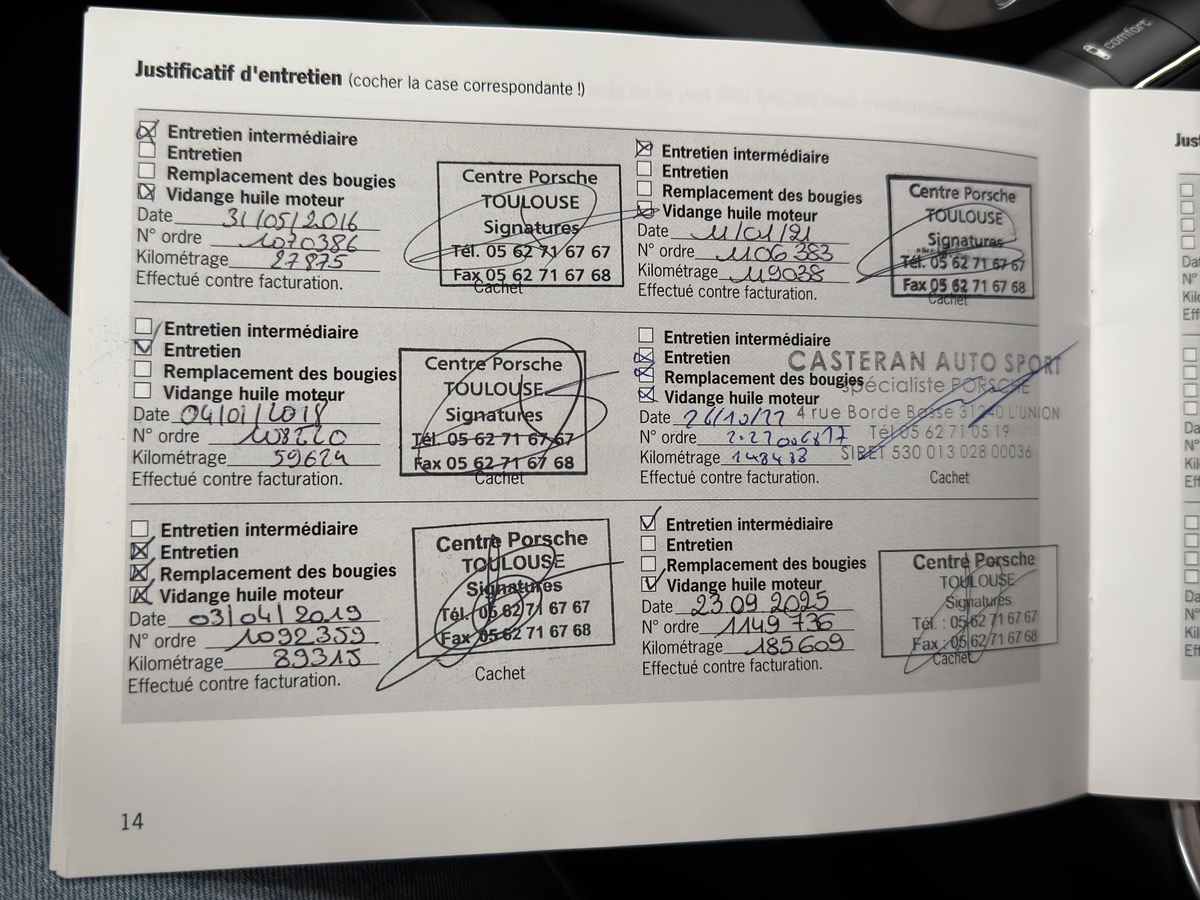 Justificatif d'entretien (cocher la case correspondante !)
Entretien intermédiaire
Entretien
Remplacement des bougies
Vidange huile moteur
Date 31/05/2016
N° ordre 1070386
Kilométrage 27875
Effectué contre facturation.
Centre Porsche
TOULOUSE
Signatures
Tél. 05 62 71 67 67
Fax 05 62 71 67 68
Cachet
Entretien intermédiaire
Entretien
Remplacement des bougies
Vidange huile moteur
Date 04/01/2018
N° ordre
Kilométrage 59624
Effectué contre facturation.
Centre Porsche
TOULOUSE
Signatures
Tél. 05 62 71 67 67
Fax 05 62 71 67 68
Cachet
Entretien intermédiaire
Entretien
Remplacement des bougies
Vidange huile moteur
Date 03/04/2019
N° ordre 1092359
Kilométrage 89315
Effectué contre facturation.
Centre Porsche
TOULOUSE
Signatures
Tél. 05 62 71 67 67
Fax 05 62 71 67 68
Cachet
Entretien intermédiaire
Entretien
Remplacement des bougies
Vidange huile moteur
Date 11/01/21
N° ordre 1106383
Kilométrage 119038
Effectué contre facturation.
Centre Porsche
TOULOUSE
Signatures
Tél. 05 62 71 67 67
Fax 05 62 71 67 68
Cachet
Entretien intermédiaire
Entretien
Remplacement des bougies
Vidange huile moteur
Date
N° ordre
Kilométrage 148438
Effectué contre facturation.
CASTERAN AUTO SPORT
spécialiste PORSCHE
4 rue Borde Basse 31240 L'UNION
Tél 05 62 71 05 19
SIRET 530 013 028 00036
Cachet
Entretien intermédiaire
Entretien
Remplacement des bougies
Vidange huile moteur
Date 23 09 2025
N° ordre 1149736
Kilométrage 185609
Effectué contre facturation.
Centre Porsche
TOULOUSE
Signatures
Tél. : 05 62 71 67 67
Fax : 05 62 71 67 68
Cachet
14
comfort